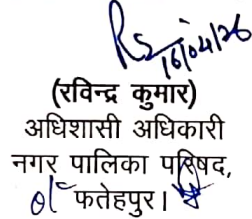 16/04/26
(रविन्द्र कुमार)
अधिशासी अधिकारी
नगर पालिका परिषद,
फतेहपुर।